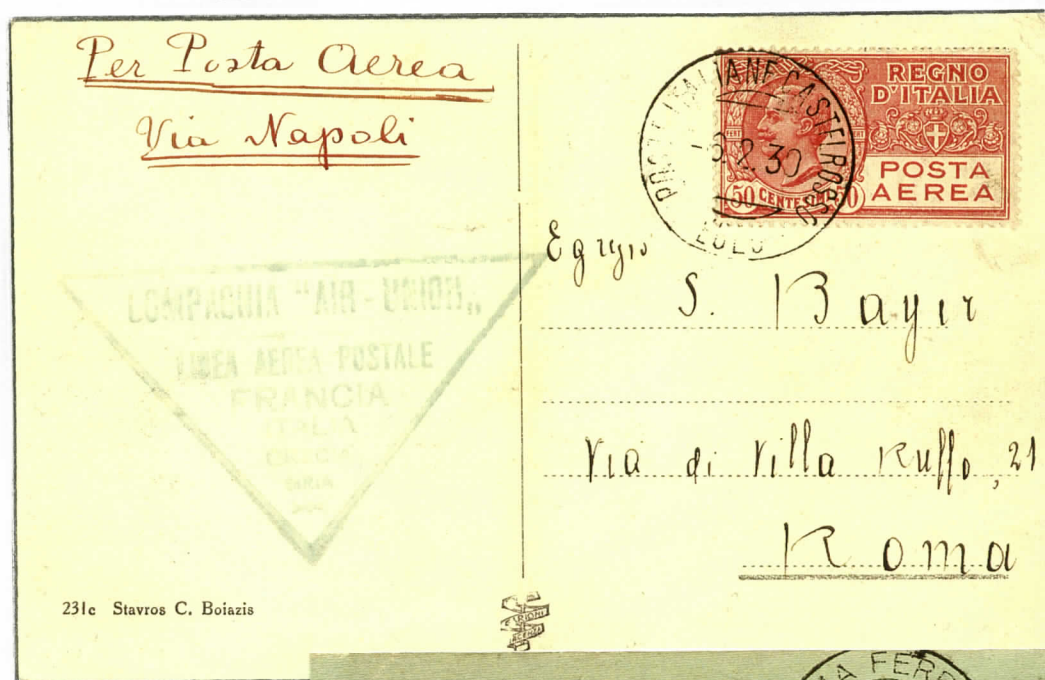 Per Posta Aerea
Via Napoli
POSTE ITALIANE CASTELROSSO
8.2.30
EGEO
REGNO
D'ITALIA
POSTA
AEREA
50 CENTESIMI 50
COMPAGNIA "AIR - UNION"
LINEA AEREA POSTALE
FRANCIA
ITALIA
SIRIA
Egregio
S. Bayer
Via di Villa Ruffo, 21
Roma
231c Stavros C. Boiazis
FERR